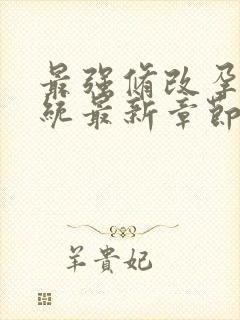 最强脩改孕
统最新章節
羊貴妃